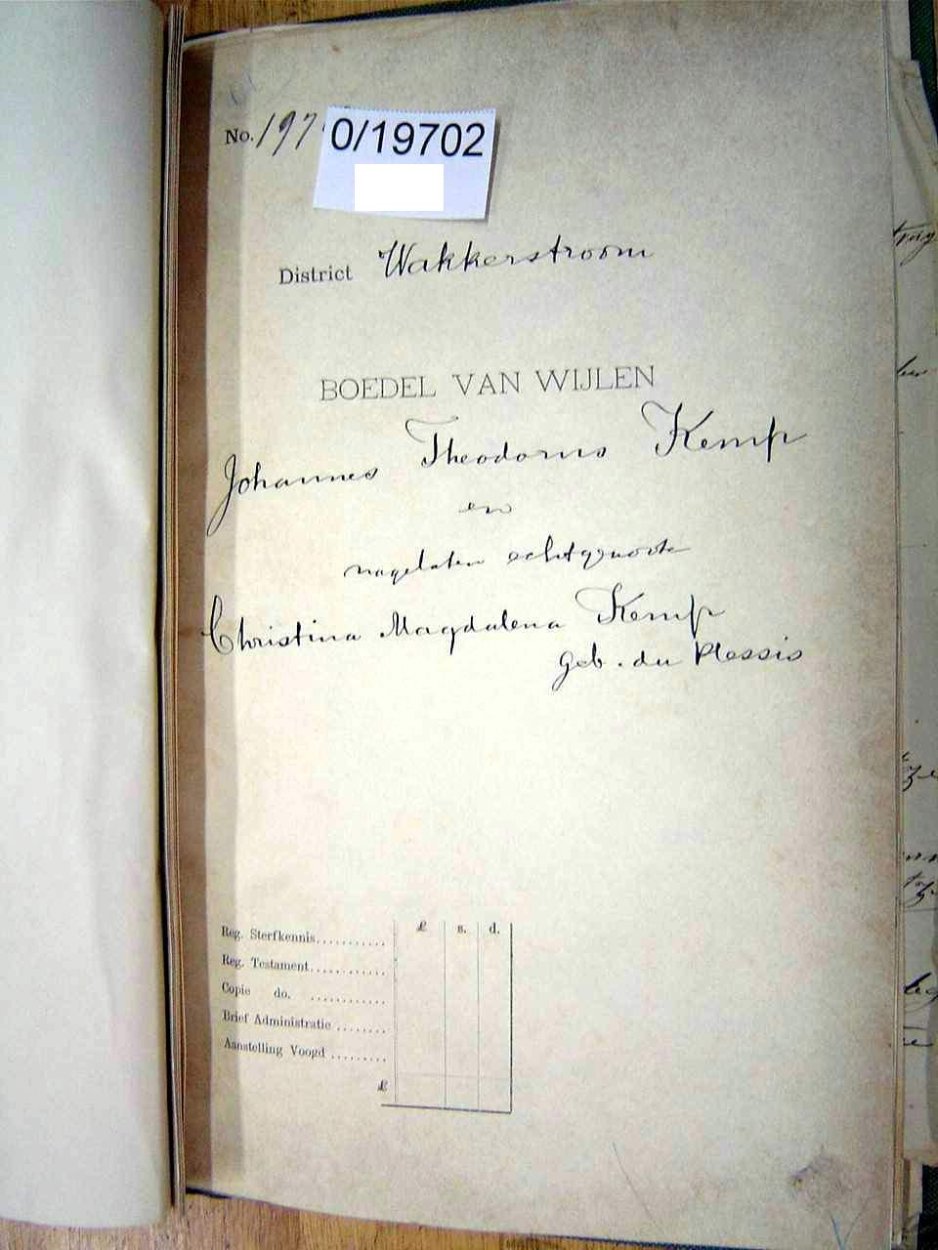 No. 197
0/19702
District Wakkerstroom
BOEDEL VAN WIJLEN
Johannes Theodorus Kemp
en
nagelaten echtgenoote
Christina Magdalena Kemp
geb. du Plessis
£ s. d.
Reg. Sterfkennis...........
Reg. Testament............
Copie do. ............
Brief Administratie ........
Aanstelling Voogd .........
£